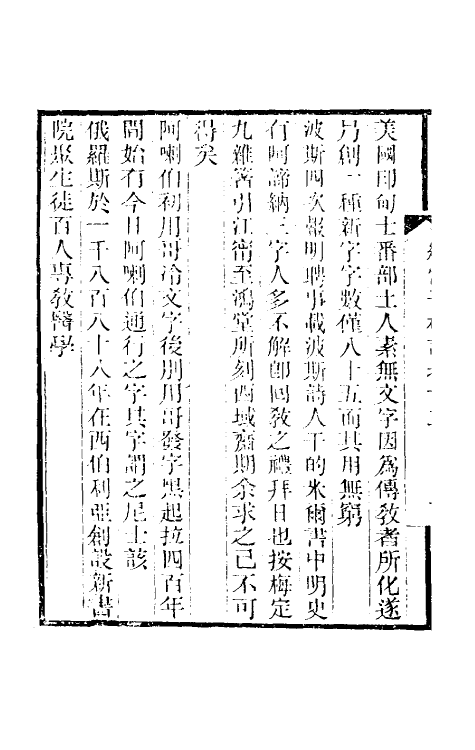 美國印甸士番部土人素無文字因為傳教者所化遂
另創一種新字字數僅八十五而其用無窮
波斯四次報明聘事載波斯詩人干的米爾書中明史
有阿諦納三字人多不解即回教之禮拜日也按梅定
九雜著引江甯至鴻堂所刻西域齋期余求之已不可
得矣
阿喇伯初用哥洽文字後別用哥發字黑起拉四百年
間始有今日阿喇伯通行之字其字謂之尼士該
俄羅斯於一千八百八十八年在西伯利亞創設新書
院聚生徒百人專教醫學